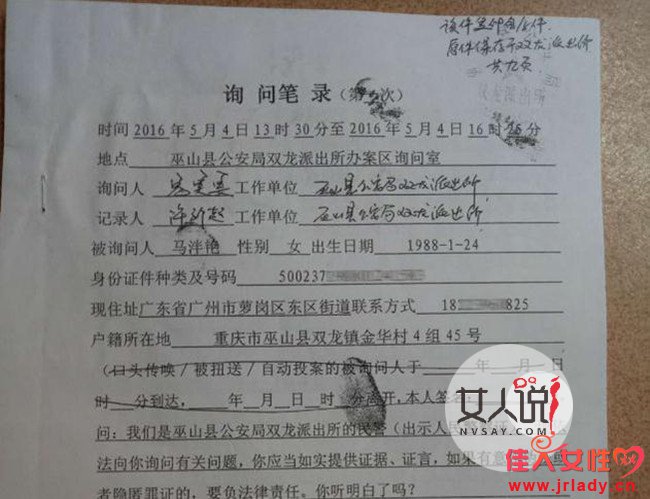 该件是钟会原件.
原件保存于双龙派出所
共九页
询 问 笔 录（第 次）
时间 2016 年 5 月 4 日 13 时 30 分至 2016 年 5 月 4 日 16 时 分
地点 巫山县公安局双龙派出所办案区询问室
询问人 工作单位 巫山县公安局双龙派出所
记录人 工作单位 巫山县公安局双龙派出所
被询问人 马泮艳 性别 女 出生日期 1988-1-24
身份证件种类及号码 500237
现住址广东省广州市萝岗区东区街道联系方式 18 825
户籍所在地 重庆市巫山县双龙镇金华村 4 组 45 号
（口头传唤/被扭送/自动投案的被询问人于 年 月 日
时 分到达， 年 月 日 时 分离开，本人签名
问：我们是巫山县公安局双龙派出所的民警（出示人民
法向你询问有关问题，你应当如实提供证据、证言，如果有意
者隐匿罪证的，要负法律责任。你听明白了吗？
女人说!
NVSAY.COM
佳人女性
www.jrlady.com